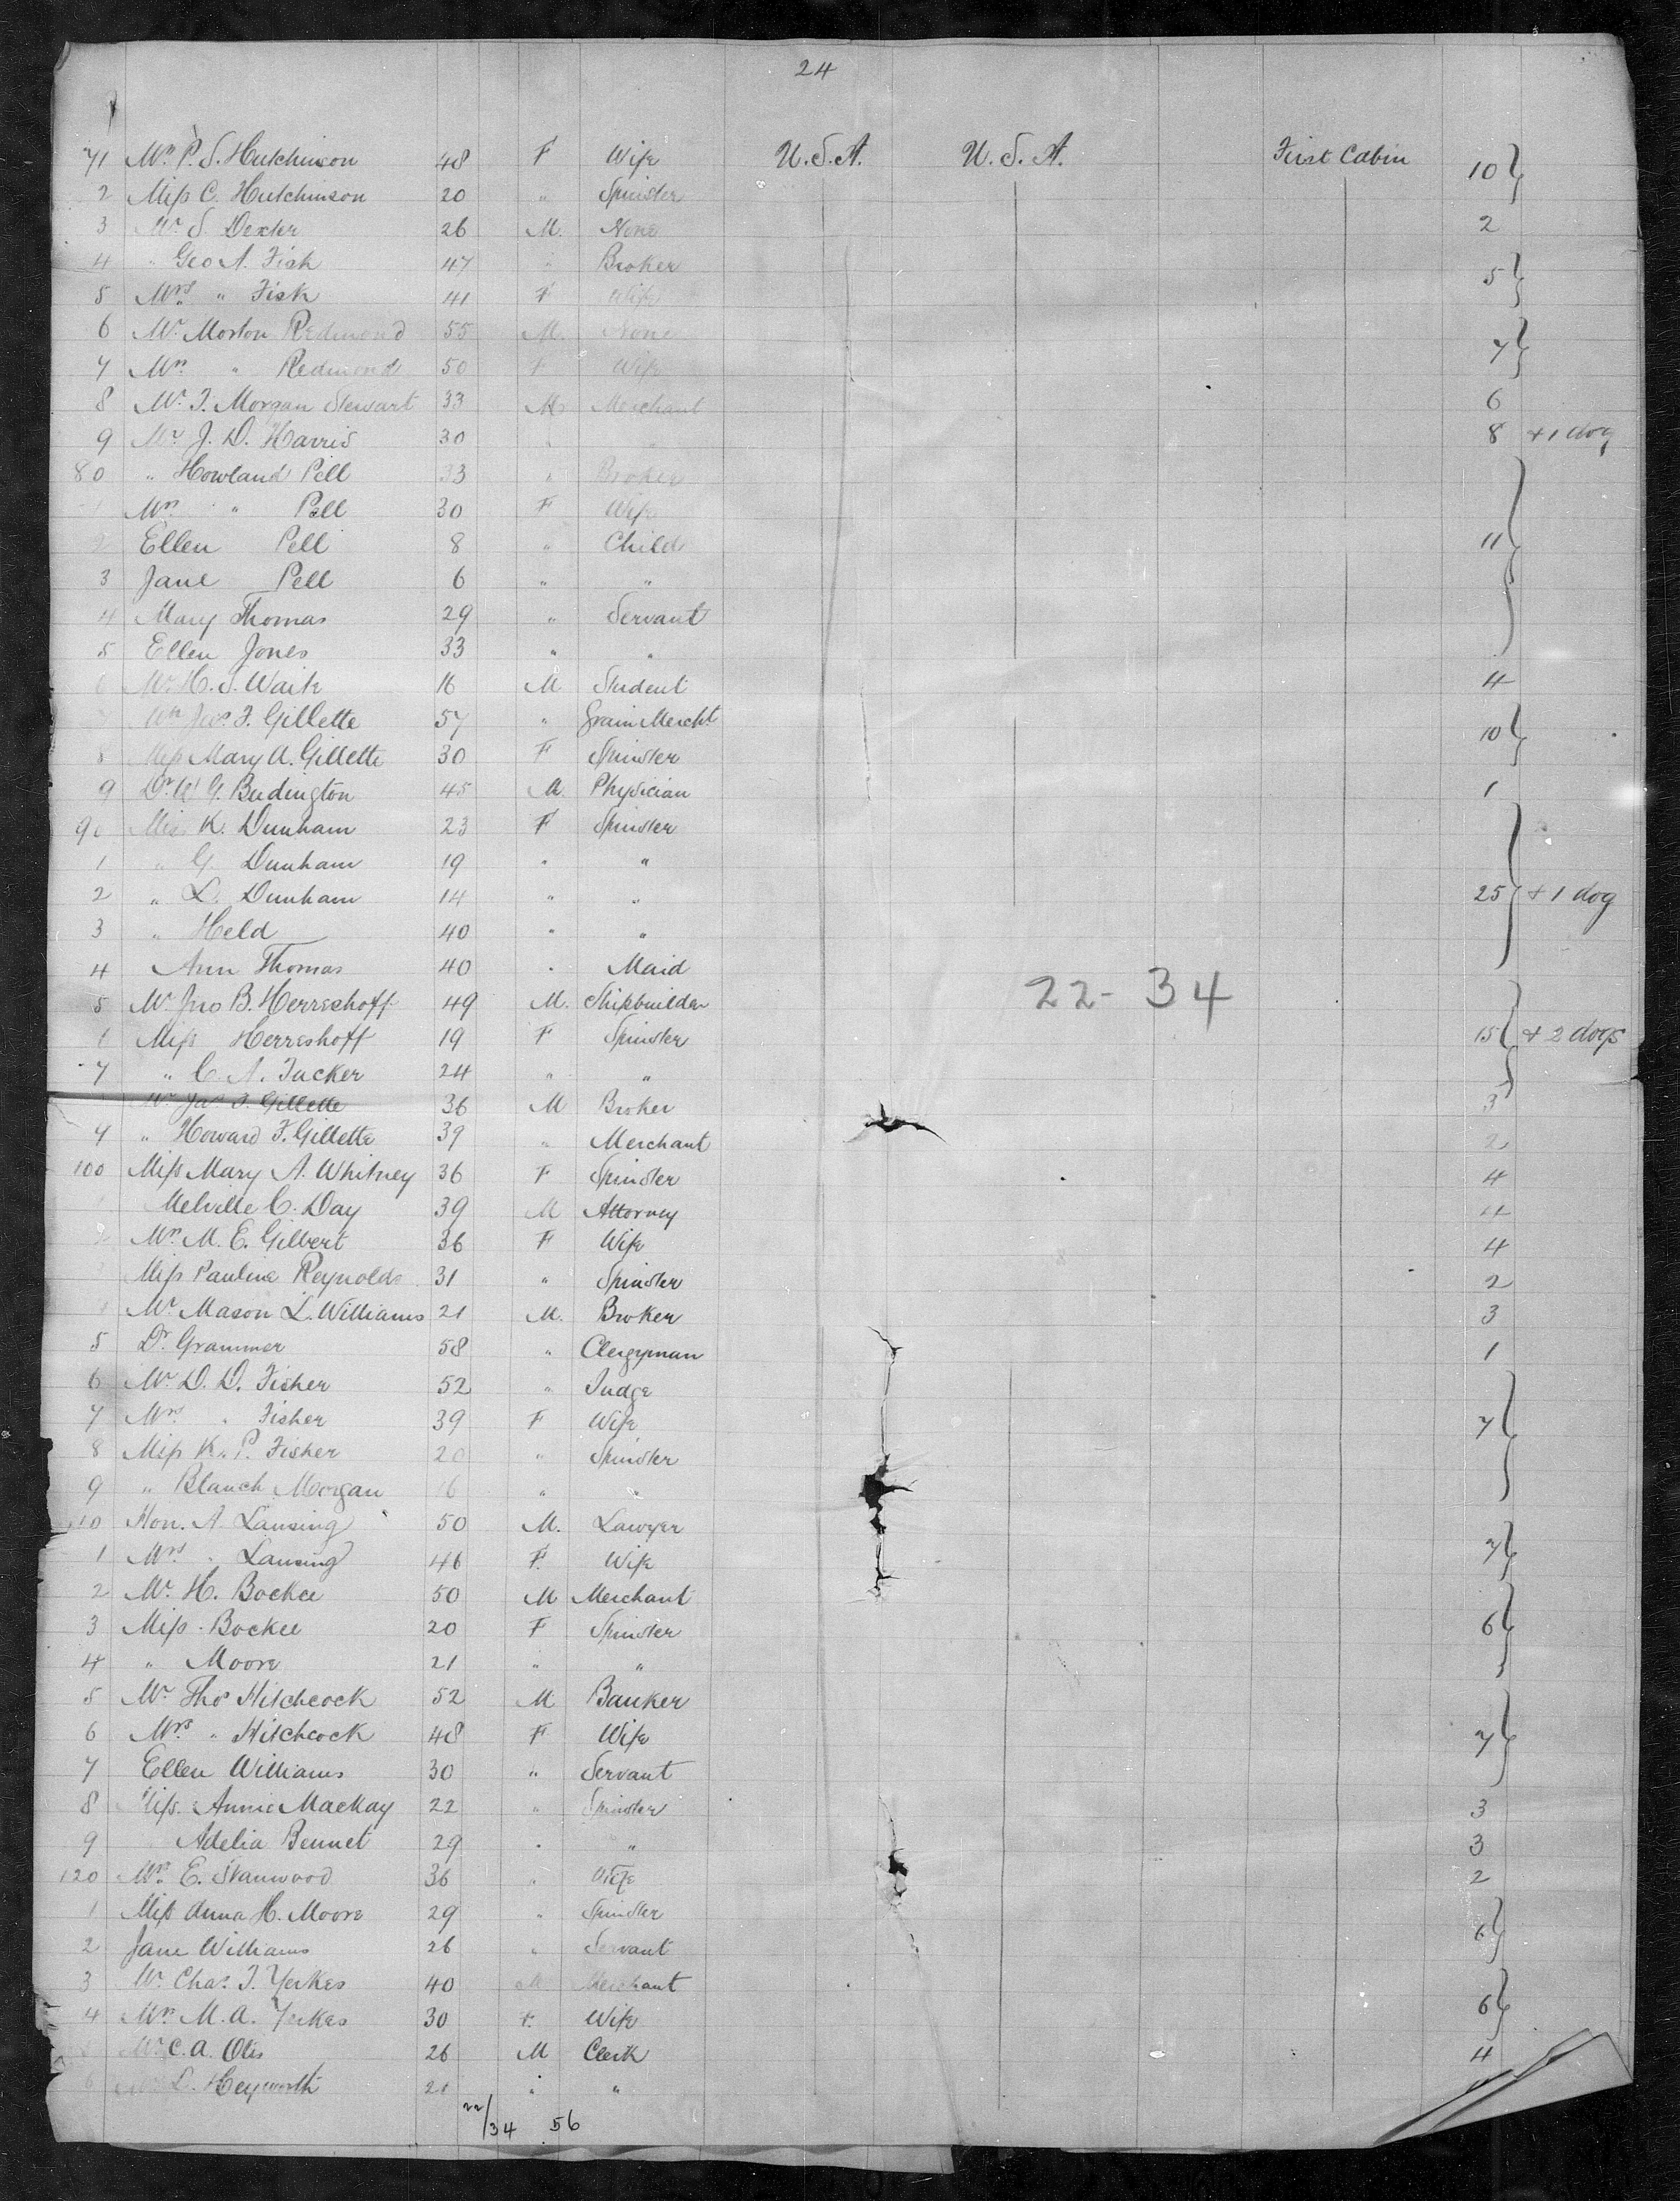 24
71 Mrs P. S. Hutchinson 48 F Wife U.S.A. U.S.A. First Cabin 10
2 Miss C. Hutchinson 20 " Spinster
3 Mr S. Dexter 26 M. None 2
4 " Geo A. Fisk 47 " Broker 5
5 Mrs " Fisk 41 F Wife
6 Mr Morton Redmond 55 M. None 7
7 Mrs " Redmond 50 F Wife
8 Mr. T. Morgan Stewart 33 M Merchant 6
9 Mr J. D. Harris 30 " " 8 + 1 dog
80 " Howland Pell 33 " Broker
1 Mrs " Pell 30 F Wife
2 Ellen Pell 8 " Child 11
3 Jane Pell 6 " "
4 Mary Thomas 29 " Servant
5 Ellen Jones 33 " "
6 Mr H. S. Waite 16 M Student 4
7 Mr Jas. F. Gillette 57 " Grain Mercht 10
8 Miss Mary A. Gillette 30 F Spinster
9 Dr. W G. Budington 45 M. Physician 1
90 Miss K. Dunham 23 F Spinster
1 " G. Dunham 19 " "
2 " L. Dunham 14 " " 25 + 1 dog
3 " Held 40 " "
4 Ann Thomas 40 " Maid
22 - 34
5 Mr Jno B. Herreshoff 49 M. Shipbuilder
6 Miss Herreshoff 19 F Spinster 15 + 2 dogs
7 " C. A. Tucker 24 " "
Mr Jas F. Gillette 36 M Broker 3
9 " Howard F. Gillette 39 " Merchant 2
100 Miss Mary A. Whitney 36 F Spinster 4
Melville C. Day 39 M Attorney 4
2 Mrs M. E. Gilbert 36 F Wife 4
Miss Pauline Reynolds 31 " Spinster 2
Mr. Mason L. Williams 21 M. Broker 3
5 Dr Grammer 58 " Clergyman 1
6 Mr D. D. Fisher 52 " Judge
7 Mrs " Fisher 39 F Wife 7
8 Miss K. P. Fisher 20 " Spinster
9 " Blanch Morgan 16 " "
110 Hon. A Lansing 50 M. Lawyer 7
1 Mrs " Lansing 46 F. Wife
2 Mr. H. Bockee 50 M Merchant
3 Miss Bockee 20 F Spinster 6
4 " Moore 21 " "
5 Mr Thos Hitchcock 52 M Banker
6 Mrs " Hitchcock 48 F Wife 7
7 Ellen Williams 30 " Servant
8 Miss. Annie Mackay 22 " Spinster 3
9 " Adelia Bennet 29 " " 3
120 Mrs E. Stanwood 36 " Wife 2
1 Miss Anna H. Moore 29 " Spinster 6
2 Jane Williams 26 " Servant
3 Mr. Chas. T. Yerkes 40 M Merchant 6
4 Mrs M. A. Yerkes 30 F. Wife
5 Mr C. A. Otis 26 M Clerk 4
6 L. Heyworth 21 " "
22/34 56